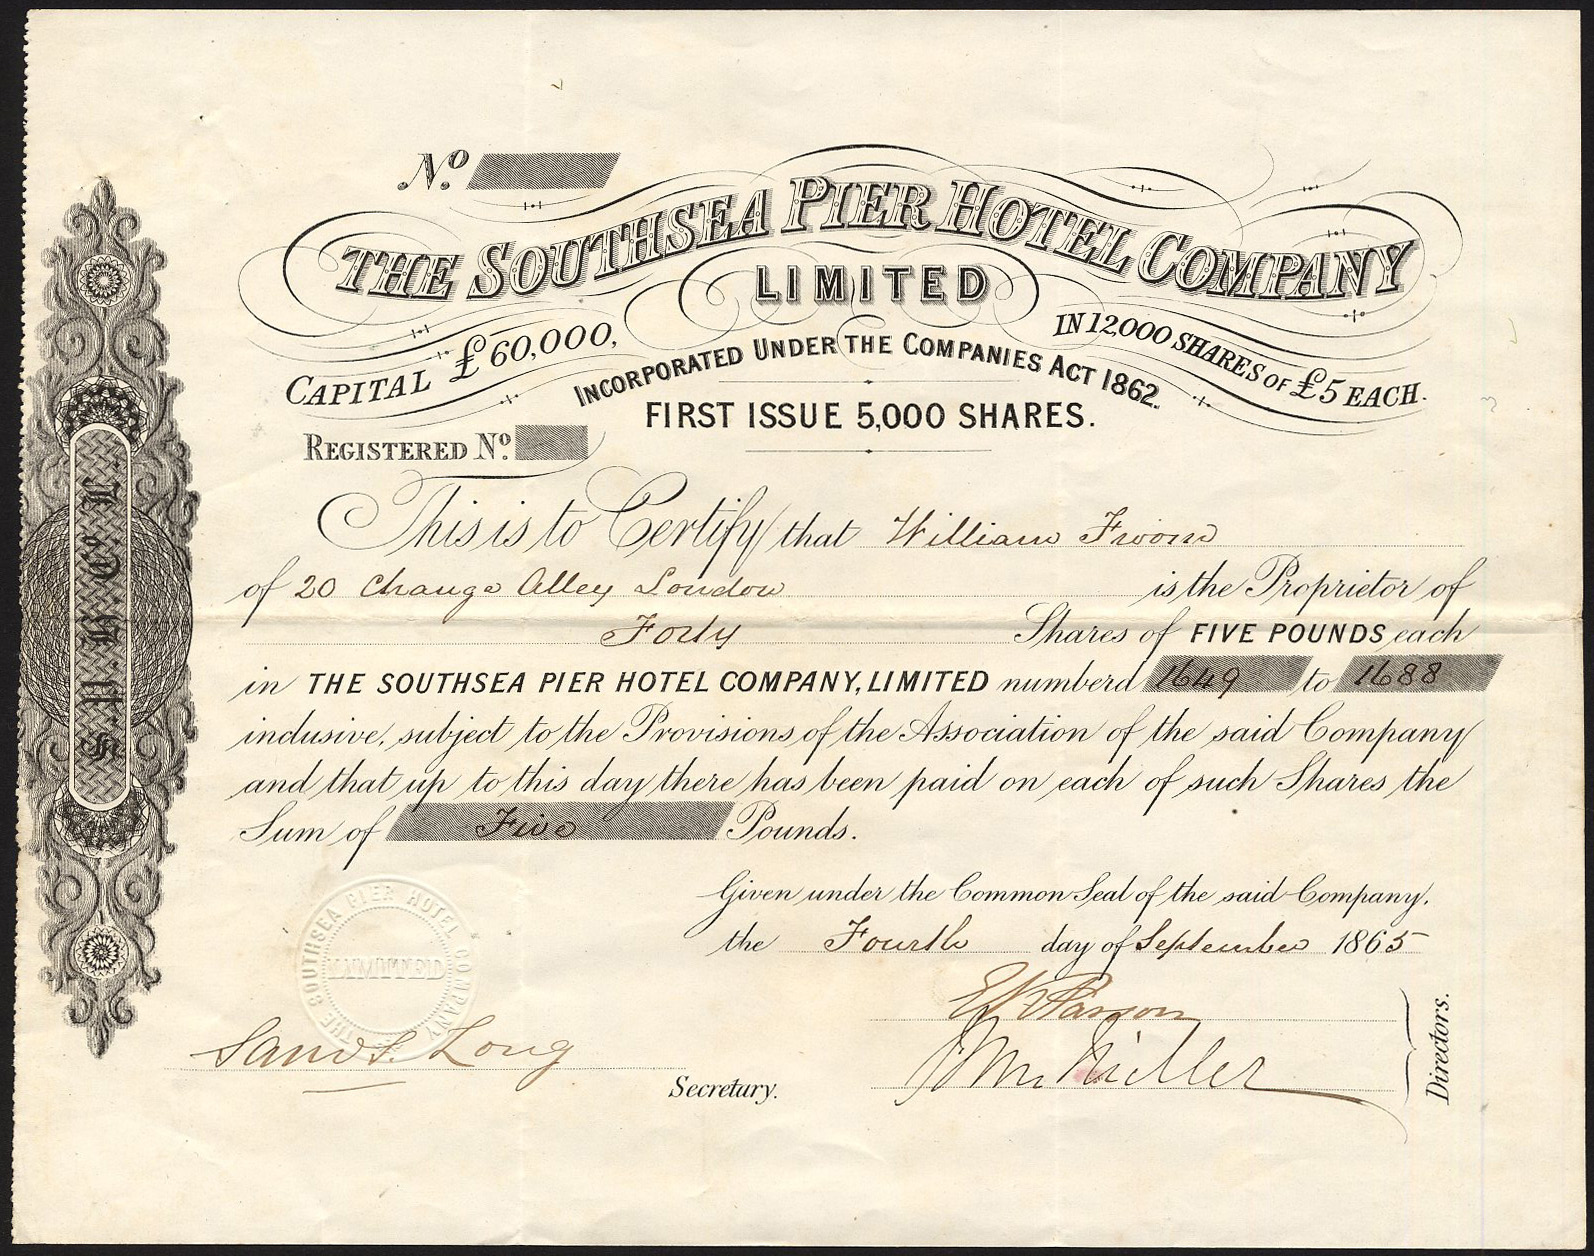 No.
THE SOUTHSEA PIER HOTEL COMPANY
LIMITED
CAPITAL £60,000,
IN 12,000 SHARES OF £5 EACH.
INCORPORATED UNDER THE COMPANIES ACT 1862.
FIRST ISSUE 5,000 SHARES.
REGISTERED No.
This is to Certify that William
of 20 Change Alley London is the Proprietor of
Forty Shares of FIVE POUNDS each
in THE SOUTHSEA PIER HOTEL COMPANY, LIMITED numberd 1649 to 1688
inclusive, subject to the Provisions of the Association of the said Company
and that up to this day there has been paid on each of such Shares the
Sum of Five Pounds.
Given under the Common Seal of the said Company.
the Fourth day of September 1865
Saml S. Long
Secretary.
Directors.
S. P. H. Co. L.
THE SOUTHSEA PIER HOTEL COMPANY
LIMITED